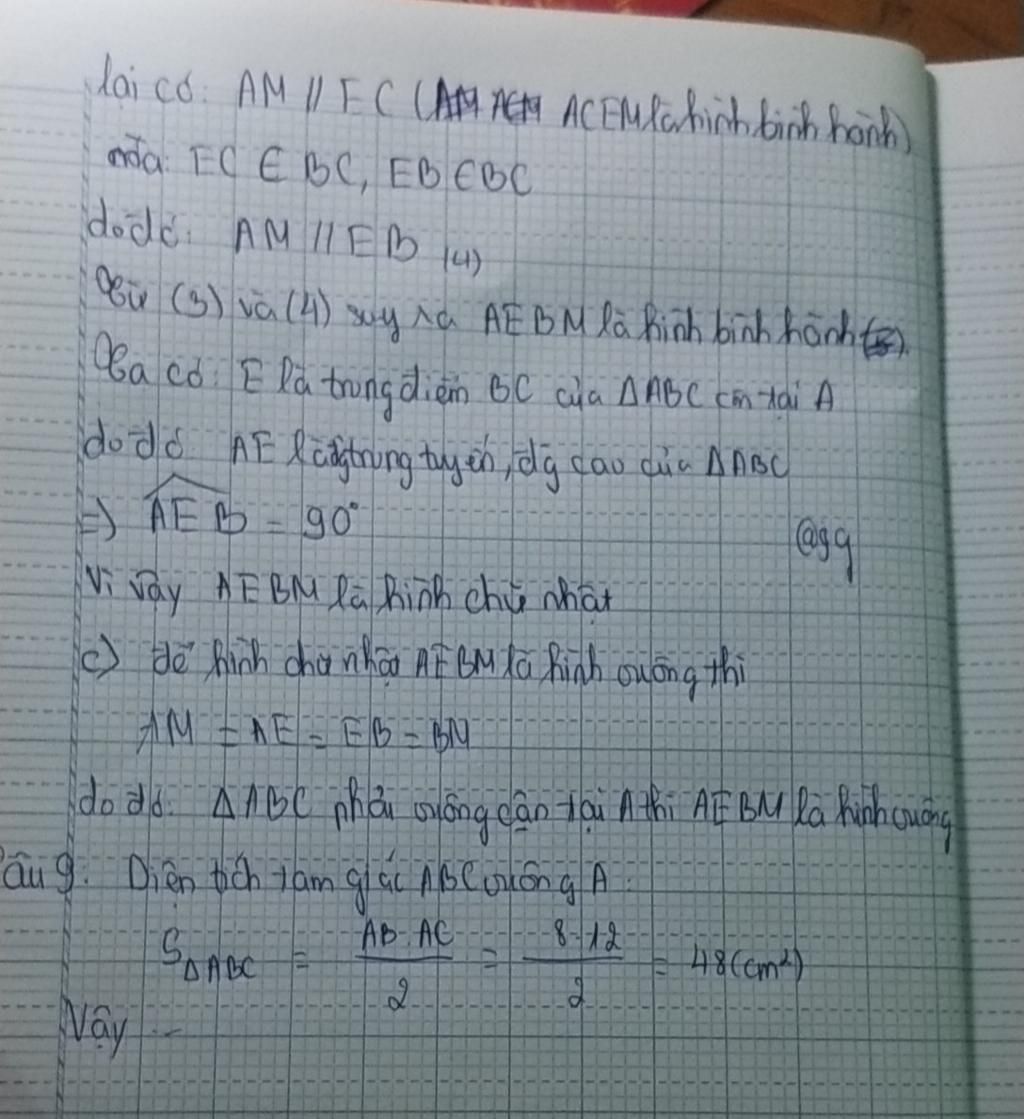 lại có: AM // EC (ACEM là hình bình hành)
mà: EC ∈ BC, EB ∈ BC
do đó: AM // EB (4)
Từ (3) và (4) suy ra AEBM là hình bình hành (5).
Ta có: E là trung điểm BC của ΔABC cân tại A
do đó AE là đg trung tuyến, đg cao của ΔABC
=> AEB = 90°
@gg
Vì vậy AEBM là hình chữ nhật
c) để hình chữ nhật AEBM là hình vuông thì
AM = AE = EB = BM
do đó: ΔABC phải vuông cân tại A thì AEBM là hình vuông
Câu 9: Diện tích tam giác ABC vuông A:
S ΔABC = AB.AC/2 = 8.12/2 = 48(cm²)
Vậy ...